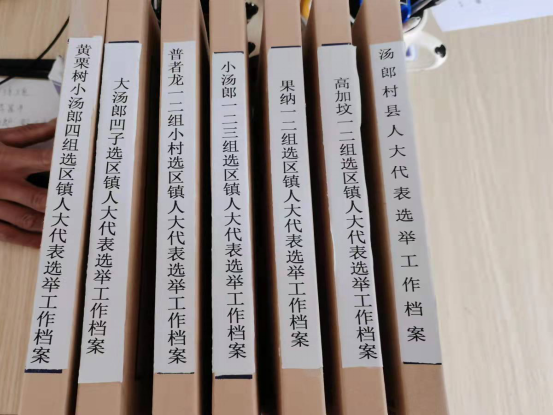 黄栗树小汤郎四组选区镇人大代表选举工作档案
大汤郎凹子选区镇人大代表选举工作档案
普者龙一二组小村选区镇人大代表选举工作档案
小汤郎一二三组选区镇人大代表选举工作档案
果纳一二组选区镇人大代表选举工作档案
高加坟一二组选区镇人大代表选举工作档案
汤郎村县人大代表选举工作档案